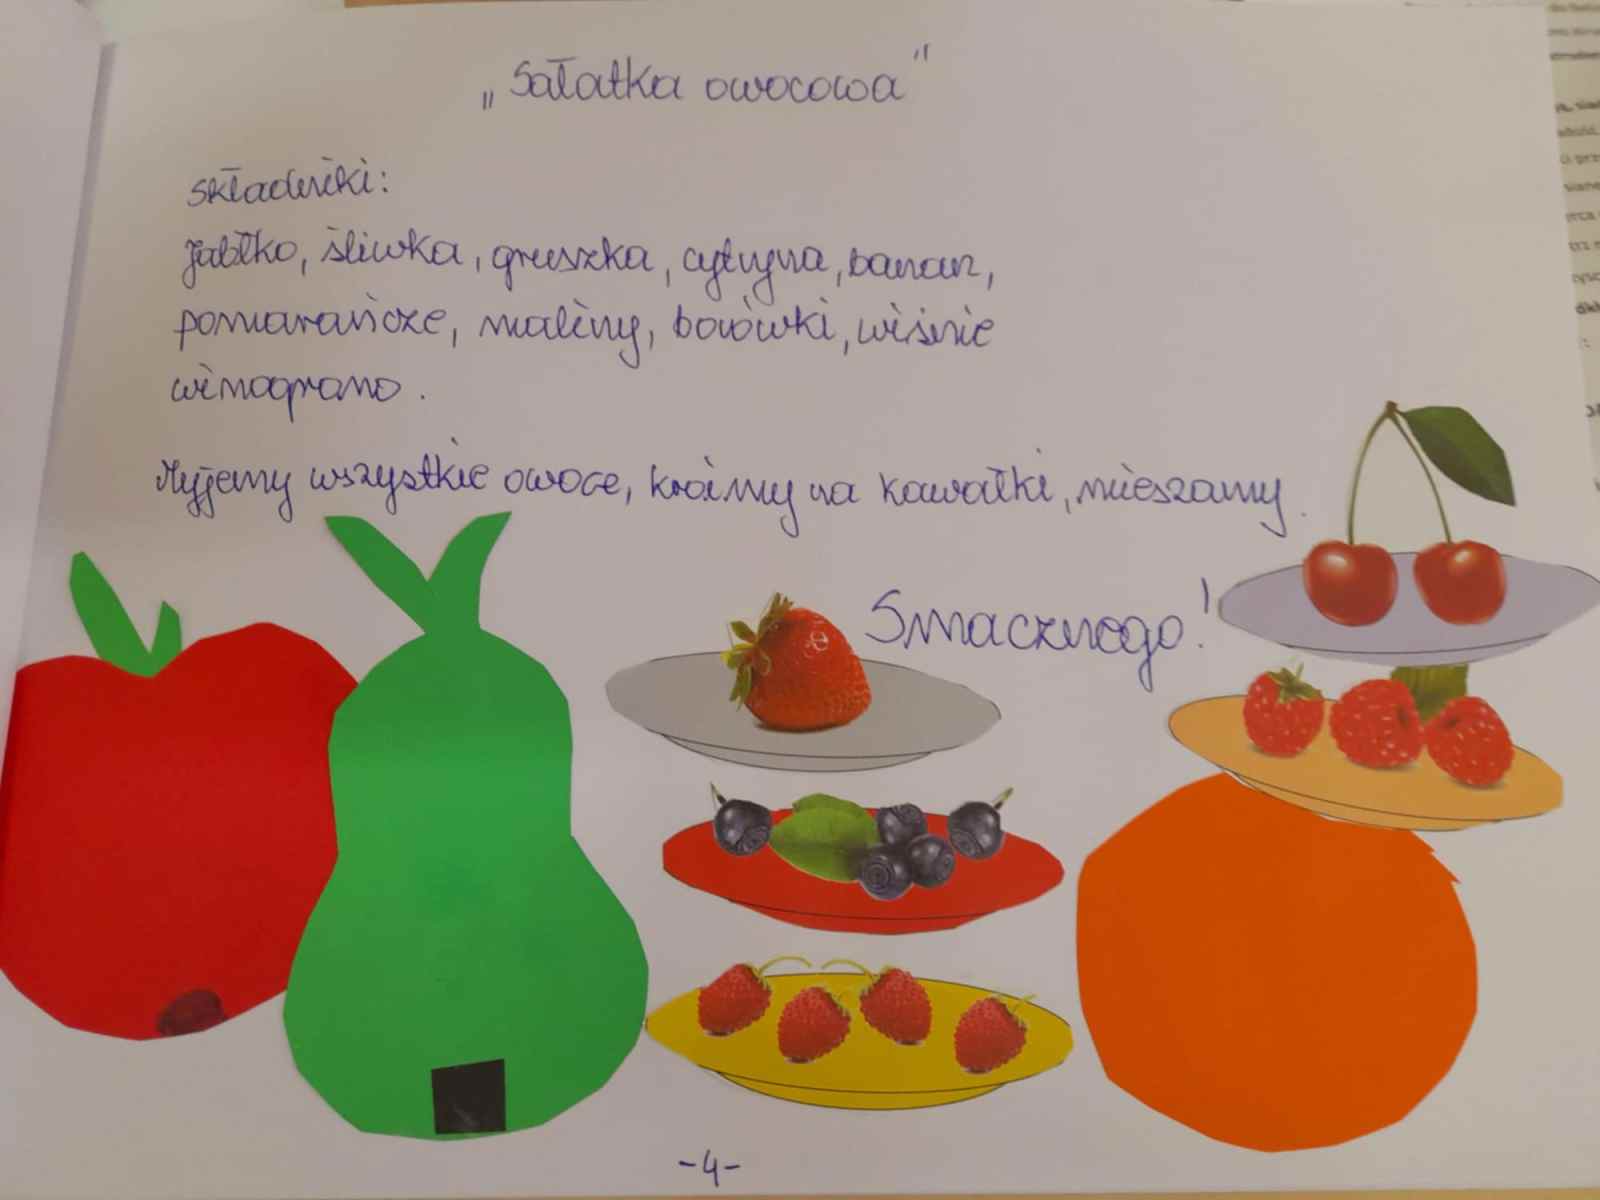 „Sałatka owocowa"
składniki:
Jabłko, śliwka, gruszka, cytryna, banan,
pomarańcze, maliny, borówki, wiśnie
winogrono.
Myjemy wszystkie owoce, kroimy na kawałki, mieszamy.
Smacznego!
-4-